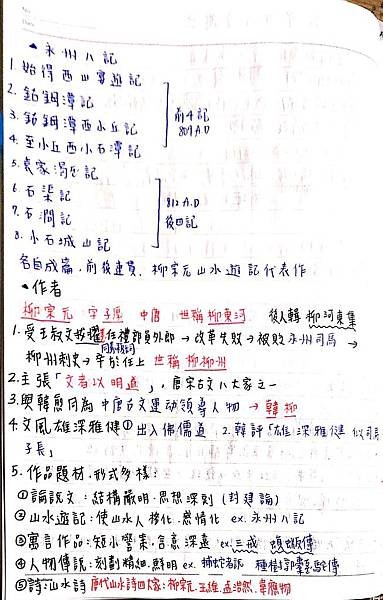 ▲永州八記
1. 始得西山宴遊記
2. 鈷鉧潭記
3. 鈷鉧潭西小丘記
4. 至小丘西小石潭記
前4記
809 A.D
5. 袁家渴記
6. 石渠記
7. 石澗記
8. 小石城山記
812 A.D
後四記
各自成篇,前後連貫,柳宗元山水遊記代表作
▲作者
柳宗元 字子厚 中唐 世稱柳河東 後人輯 柳河東集
1. 受王叔文拔擢任禮部員外郎→改革失敗→被貶永州司馬→
柳州刺史→卒於任上 世稱柳柳州
2. 主張「文者以明道」,唐宋古文八大家之一
3. 與韓愈同為中唐古文運動領導人物→韓柳
4. 文風雄深雅健①出入佛儒道 2. 韓評「雄深雅健 似司馬
子長」
5. 作品題材、形式多樣
①論說文:結構嚴明、思想深刻(封建論)
②山水遊記:使山水人格化、感情化 ex. 永州八記
③寓言作品:短小警策、含意深遠 ex. 三戒 蝜蝂傳
④人物傳說:刻劃精細、鮮明 ex. 捕蛇者說 種樹郭橐駝傳
⑤詩:山水詩 唐代山水詩四大家:柳宗元、王維、孟浩然、韋應物